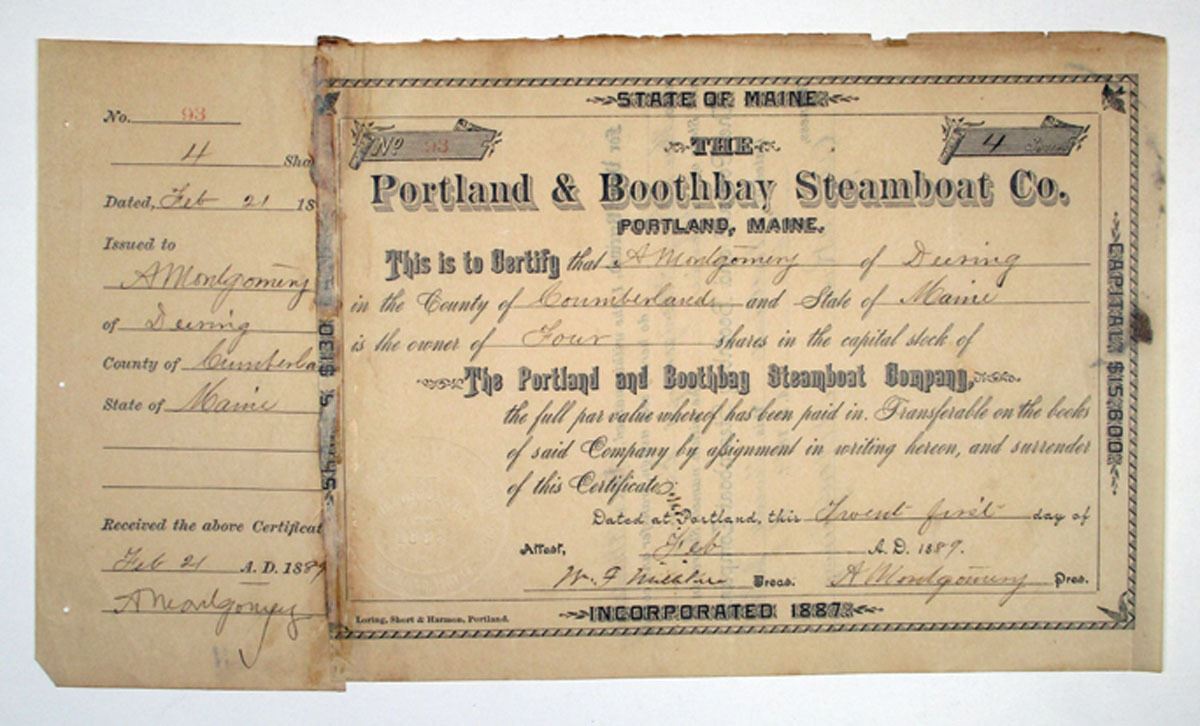 No. 93
4 Sha
Dated, Feb 21 18
Issued to
A Montgomery
of Deering
County of Cumberla
State of Maine
Received the above Certificat
Feb 21 A.D. 1889
A Montgomery
STATE OF MAINE
No 93
4
THE
Portland & Boothbay Steamboat Co.
PORTLAND, MAINE.
This is to Certify that A Montgomery of Deering
in the County of Coumberland and State of Maine
is the owner of Four shares in the capital stock of
The Portland and Boothbay Steamboat Company,
the full par value whereof has been paid in. Transferable on the books
of said Company by assignment in writing hereon, and surrender
of this Certificate.
Dated at Portland, this Twent first day of
Attest, Feb A.D. 1889.
Wm F Treas. A Montgomery Pres.
INCORPORATED 1887
Loring, Short & Harmon, Portland.
CAPITAL $15,600
$130